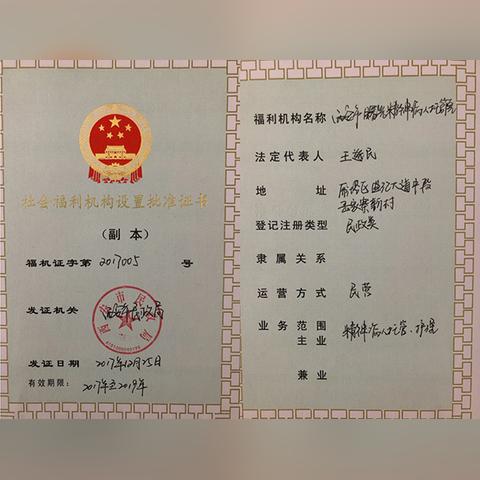 社会福利机构设置批准证书
（副 本）
福机证字第 2017005 号
发证机关 西安市民政局
发证日期 2017年12月25日
有效期限： 2017年至2019年
福利机构名称 西安市曙光精神病人托管院
法定代表人 王
地 址 雁塔区曲江大道中段
新村
登记注册类型 民政类
隶属关系
运营方式 民营
业务范围
主业 精神病人托管、护理
兼业